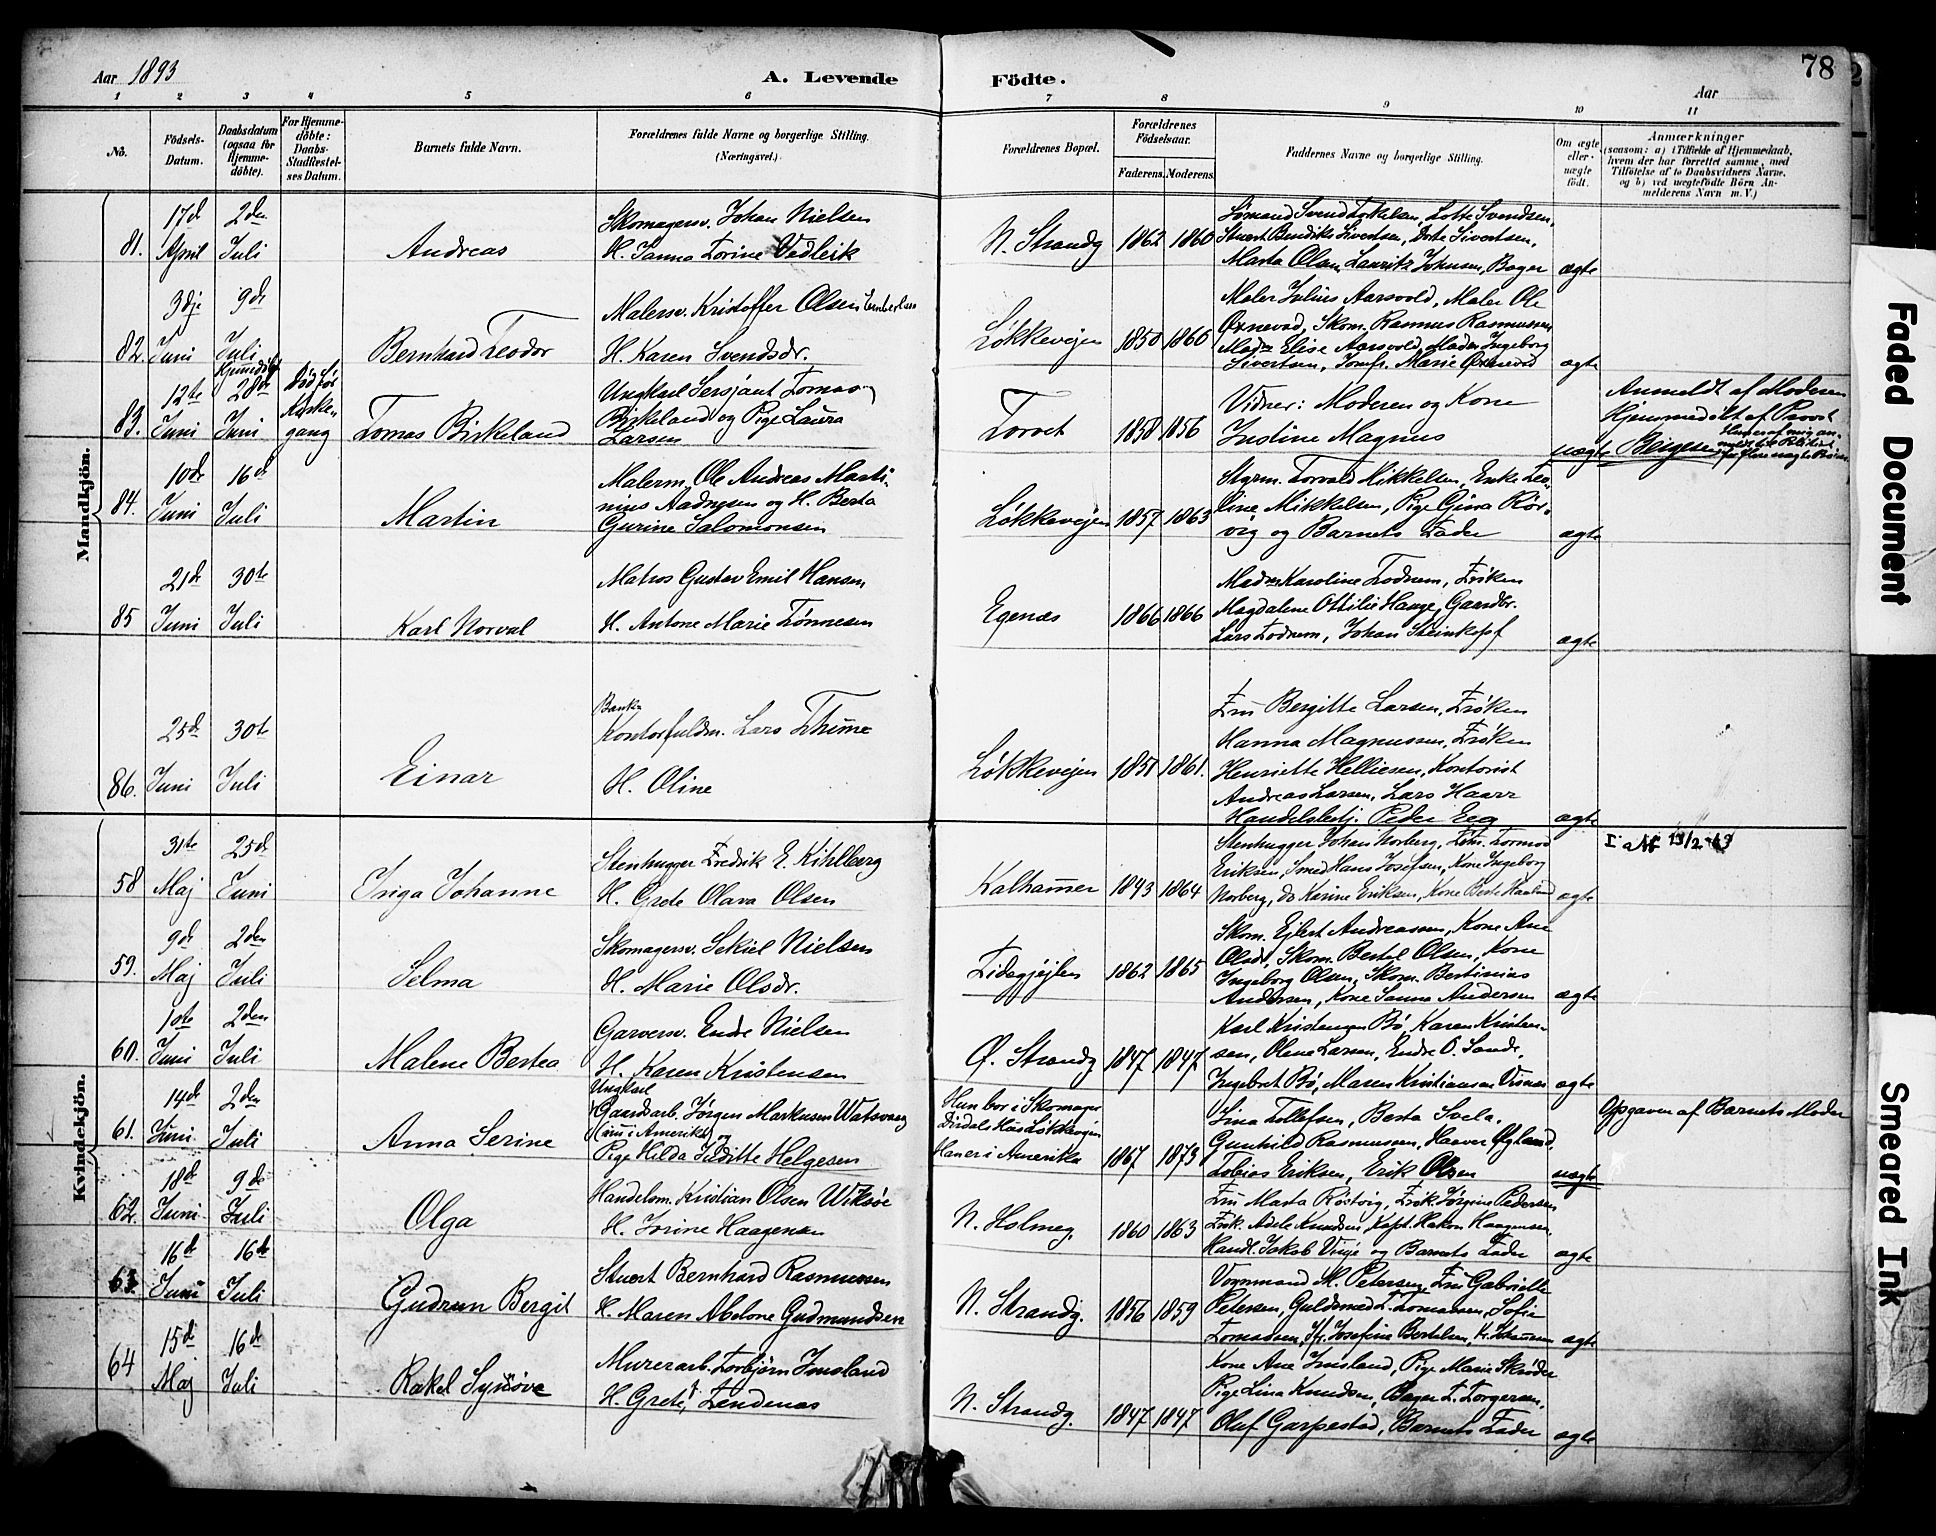 Aar 1893
A. Levende
Födte.
78
Aar
1 2 3 4 5 6 7 8 9 10 11
No.
Födsels-Datum.
Daabsdatum (ogsaa for Hjemme-döbte).
For Hjemme-döbte: Daabs-Stadfæstel-ses Datum.
Barnets fulde Navn.
Forældrenes fulde Navne og borgerlige Stilling. (Næringsvei.)
Forældrenes Bopæl.
Forældrenes Födselsaar.
Faderens. Moderens.
Faddernes Navne og borgerlige Stilling.
Om ægte eller uægte født.
Anmærkninger
(saasom: a) i Tilfælde af Hjemmedaab,
hvem der har forrettet samme, med
Tilföielse af to Daabsvidners Navne,
og b) ved uægtefödte Börn An-
melderens Navn m. V.)
Mandkjön.
81. 17d April 2den Juli Andreas
Skomagersv. Johan Nielsen
H. Sanna Torine Vedleik
N. Strandg 1862 1860
Sømand Svend Torkelsen, Lotte Svendsen,
Stuert Bendike Sivertsen, Dorte Sivertsen,
Marta Olsen, Lauritz Johnsen, Bager ægte
82. 3dje Juni 9de Juli Bernhard Teodor
Malersv. Kristoffer Olsen
H. Karen Svendsdr.
Løkkevejen 1858 1860
Maler Julius Aarsvold, Maler Ole
Oxnevad, Skom. Rasmus Rasmussen
Madm Elise Aarsvold, Madm Ingeborg
Sivertsen, Jomfr. Marie Oxnevad ægte
83. 12te Juni Hjemmedøbt 28de Juni Død før Kirke-gang Tomas Birkeland
Ungkarl Sersjant Tomas
Birkeland og Pige Laura
Larsen
Torvet 1858 1856
Vidner: Moderen og Kone
Justine Magnus uægte
Anmeldt af Moderen
Hjemmedøbt af Provst
Bergesen
84. 10de Juni 16de Juli Martin
Malerm. Ole Andreas Marti-
nius Aadnesen og H. Berta
Gurine Salomonsen
Løkkevejen 1857 1863
Styrm. Torvald Mikkelsen, Enke Teo-
line Mikkelsen, Pige Gina Rör-
vig og Barnets Fader ægte
85 21de Juni 30te Juli Karl Norval
Matros Gustav Emil Hansen
H. Antone Marie Tönnesen
Egenæs 1866 1866
Madm Karoline Todnem, Frøken
Magdalene Ottilie Hauge, Gaardbr.
Lars Todnem, Johan Steinkopf ægte
86. 25de Juni 30te Juli Einar
Bank
Kontorfuldm. Lars Thime
H. Oline
Løkkevejen 1851 1861.
Fru Bergitte Larsen, Frøken
Hanna Magnussen, Frøken
Henriette Helliesen, Kontorist
Andreas Larsen, Lars Haarr
Handelsbetj. Peder Eeg ægte
Kvindekjön.
58 31te Maj 25de Juni Inga Johanne
Stenhugger Fredrik E. Kihlberg
H. Grete Olava Olsen
Kalhammer 1843 1864
Stenhugger Johan Norberg, Tormod
Eriksen, Smed Hans Josefsen, Kone Ingeborg
Norberg, do Karine Eriksen, Kone Berte Haaland ægte
59. 9de Maj 2den Juli Selma
Skomagersv. Sekiel Nielsen
H. Marie Olsdr.
Tidegjejlen 1862 1865
Skom. Ejlert Andreassen, Kone Ane
Olsdt, Skom. Bertel Olsen, Kone
Ingeborg Olsen, Skom. Bertinius
Andersen, Kone Sanna Andersen ægte
60. 10te Juni 2den Juli Malene Bertea
Garversv. Endre Nielsen
H. Karen Kristensen
Ø. Strandg 1847 1847
Karl Kristensen Bø, Karen Kristen-
sen, Olene Larsen, Endre O. Sande,
Ingebret Bø, Maren Kristiansen Visnæs ægte
61. 14de Juni 2den Juli Anna Serine
Ungkarl
Gaardsarb. Jörgen Markussen Watsvaag
(nu i Amerika) og
Pige Hilda Juditte Helgesen
Hun bor i Skomager
Dirdals Hus Løkkevejen
Han er i Amerika 1867 1873
Sina Tollefsen, Berta Svela,
Gunhild Rasmussen, Haaver Øgland,
Tobias Eriksen, Erik Olsen uægte
Opgaven af Barnets Moder
62. 18de Juni 9de Juli Olga
Handelsm. Kristian Olsen Wiksöe
H. Jorine Haagensen
N. Holmeg. 1860 1863
Fru Marta Röstvig, Frøk. Jörgine Pedersen
Frøk. Adele Knudsen, Kapt. Hakon Haagensen,
Handl. Jakob Vinje og Barnets Fader ægte
63. 16de Juni 16de Juli Gudrun Bergit
Stuert Bernhard Rasmussen
H. Maren Abelone Gudmundsen
N. Strandg. 1856 1859
Vognmand M. Petersen, Fru Gabrielle
Petersen, Guldsmed T. Tomassen, Sofie
Tomassen, Jfr. Josefine Bertelsen, ægte
64 15de Maj 16de Juli Rakel Synnöve
Murerarb. Torbjörn Imsland
H. Grete Tendenæs
N. Strandg. 1847 1847
Kone Ane Imsland, Pige Marie Skröder
Pige Lina Knudsen, Bager T. Torgersen,
Oluf Garpestad, Barnets Fader ægte
Faded Document
Smeared Ink